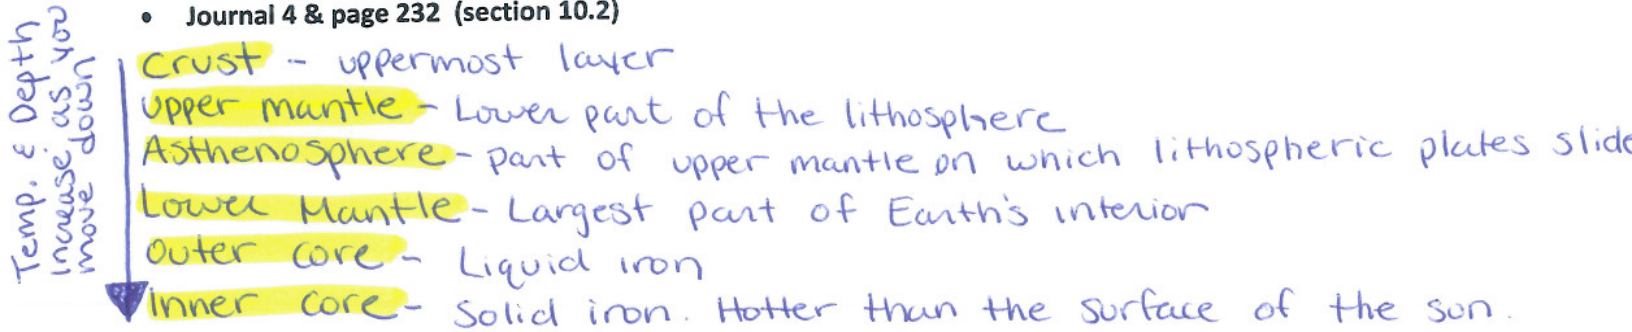 • Journal 4 & page 232 (section 10.2)
Temp. & Depth
increase as you
move down
Crust - uppermost layer
Upper mantle - Lower part of the lithosphere
Asthenosphere - part of upper mantle on which lithospheric plates slide
Lower Mantle - Largest part of Earth's interior
Outer core - Liquid iron
Inner core - Solid iron. Hotter than the surface of the sun.